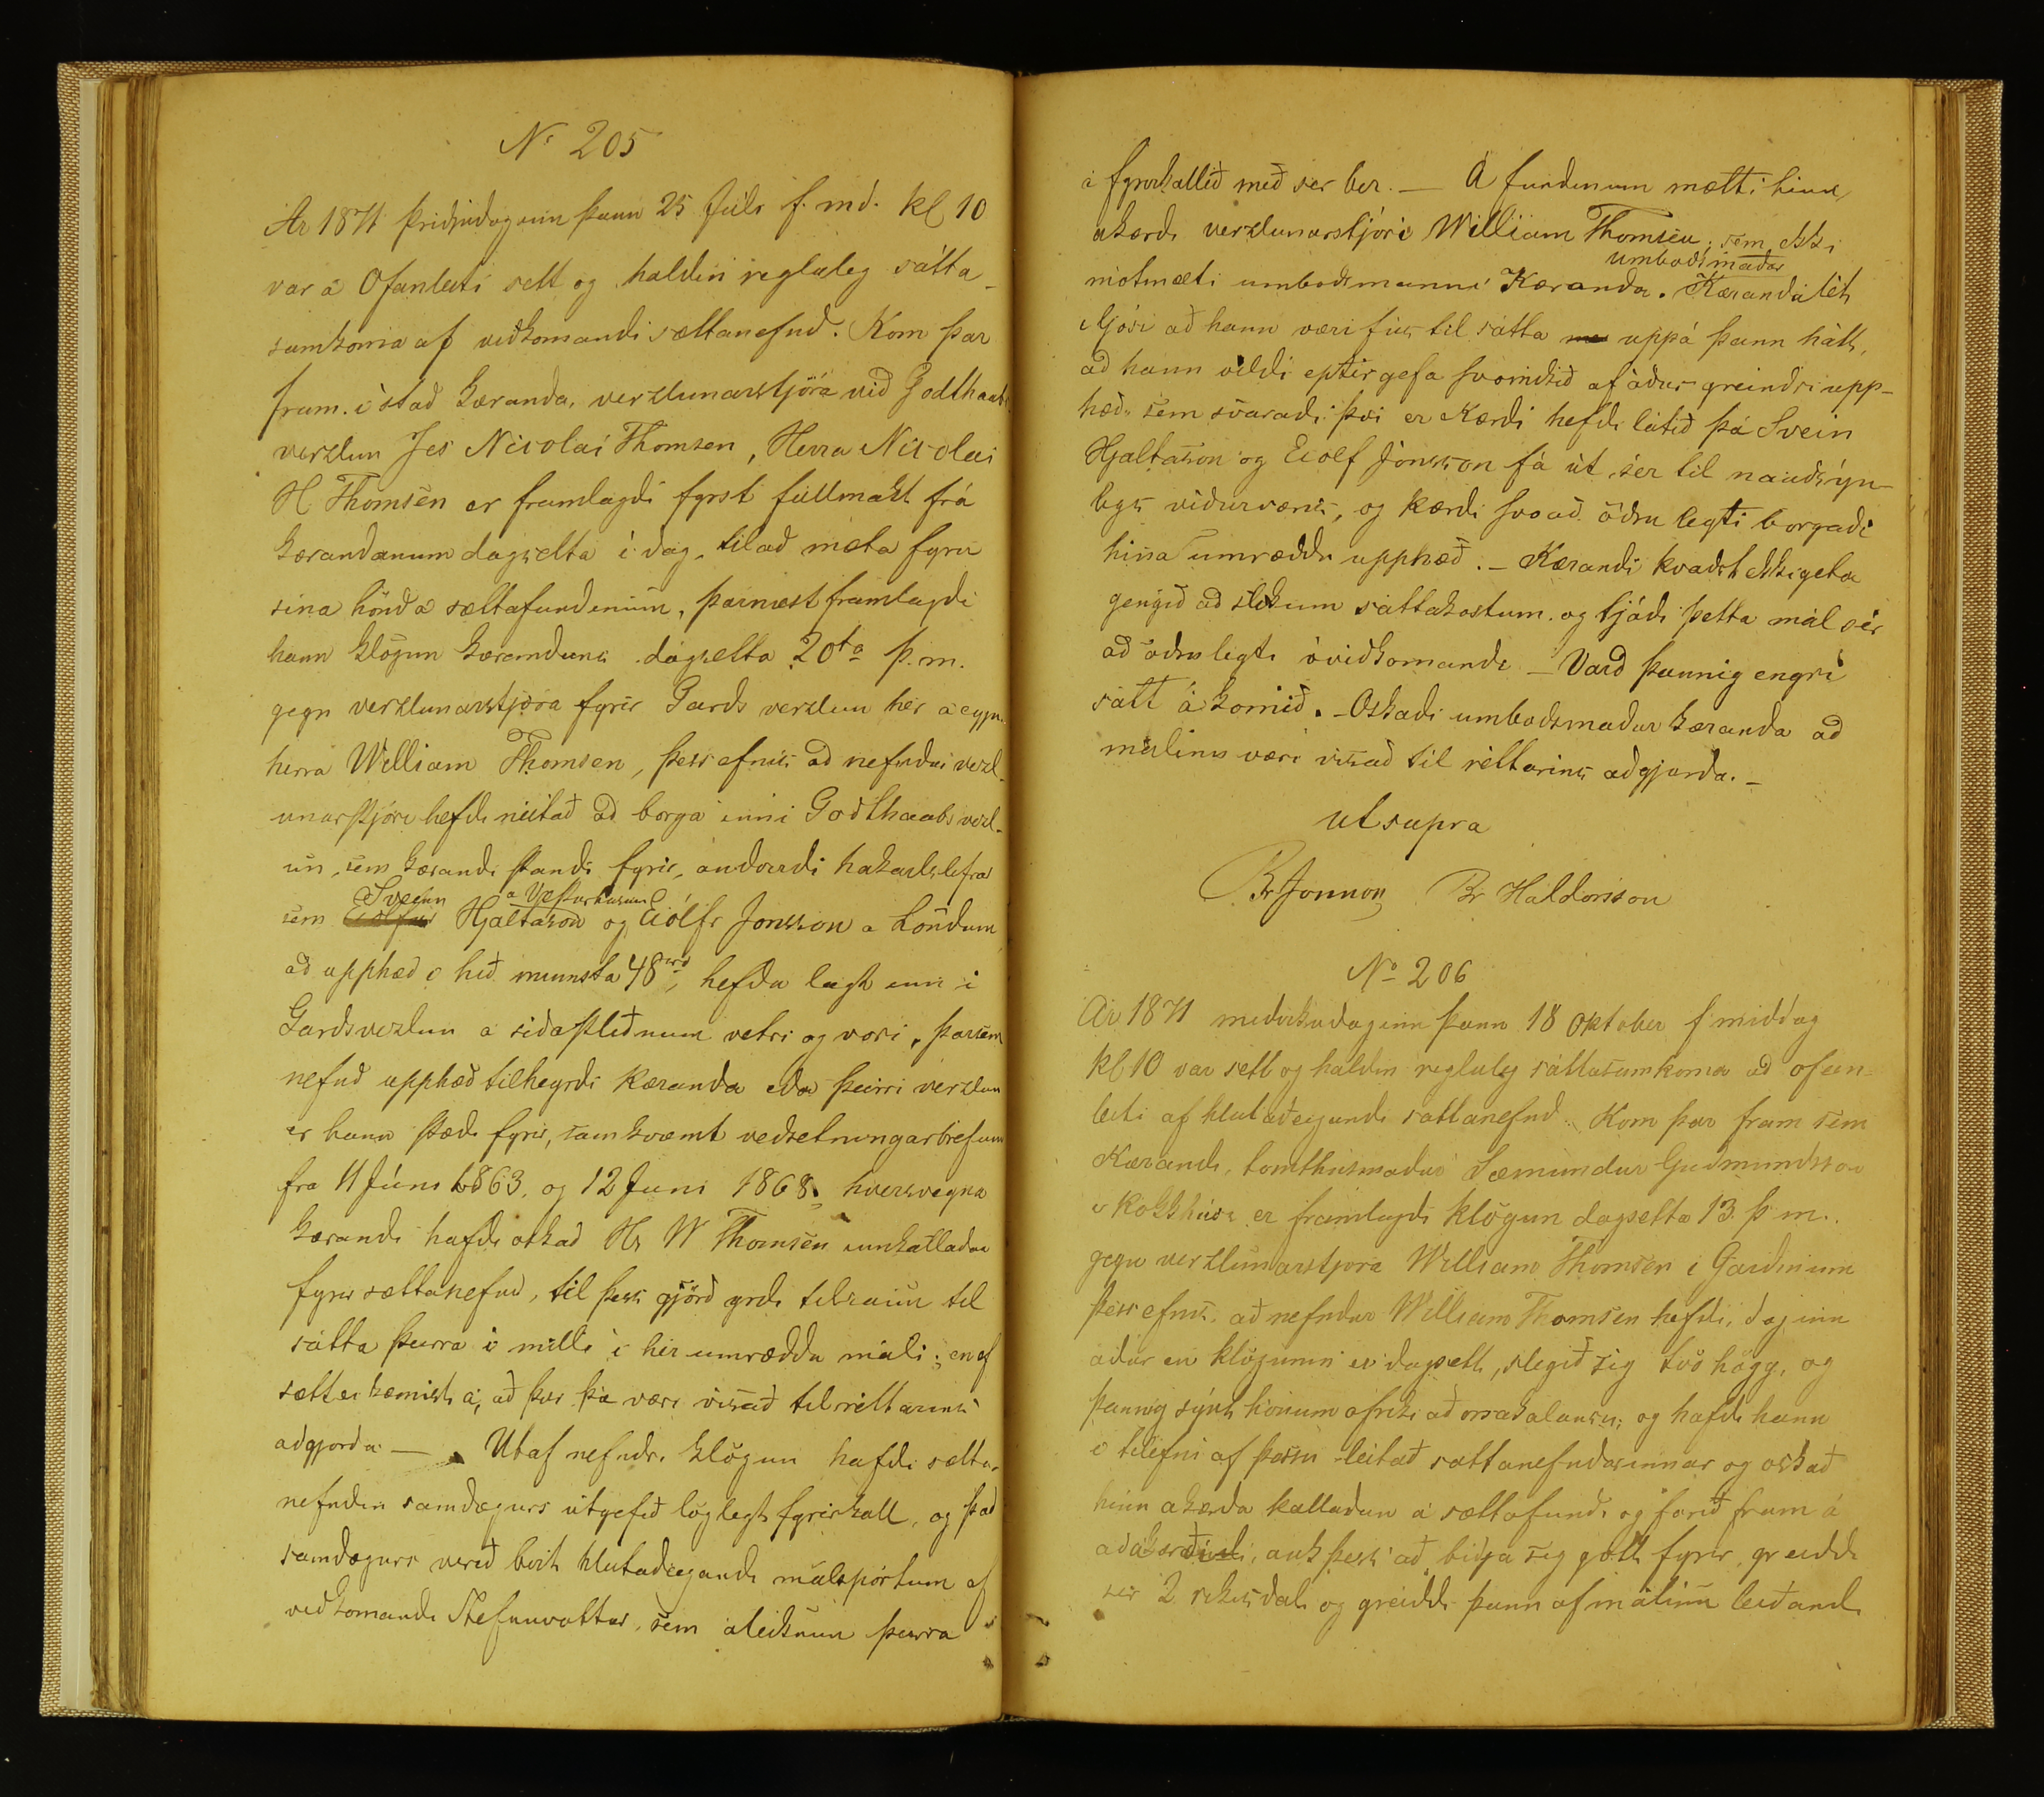 Nr 205
Ar 1871 þridjudaginn þann 25 Júli f. md. kl 10
var á Ofanleiti sett og haldin regluleg sátta-
samkoma af viðkomandi sættanefnd. Kom þar
fram í stað kæranda, verzlunarstjóra við Godthaabs
verzlun Jes Nicolai Thomsen, Herra Nicolai
H. Thomsen er framlagdi fyrst fullmakt frá
kærandanum dagsetta í dag, til að mæta fyrir
sina hönd á sættafundinum, þarnæst framlagdi
hann klögun kærandans dagsetta 20ta þ.m.
gegn verzlunarstjóra fyrir Gards verzlun hér á eyju
herra William Thomsen, þess efnis ad nefndur verzl-
unarstjóri hefdi neitað ad borga inni Godthaabs verzl-
un, sem kærandi standi fyrir, andvirdi hakarlslifrar
sem Eiólfur Sveinn Hjaltason a Vesturhusum og Eiólfr Jonsson a Löndum
að upphæd hið minnsta 48rd, hefda lagt inn i
Gardsverzlun a siðastliðnum vetri og vori, þarsem
nefnd upphæd tilheyrdi kæranda eda þeirri verzlun
er hann stædi fyrir, samkvæmt vedsetningarbrefum
fra 11 Júni 1863, og 12 Juni 1868, hversvegna
kærandi hafdi oskad Hr W Thomsen innkalladan
fyrir sættanefnd, til þess gjörd yrdi tilraun til
sátta þeirra i milli i hér umræddu máli; en ef
sætt ei kæmist á, að þvi þá væri visað til réttarins
adgjorda. — Utaf nefndri klögun hafdi sætta-
nefndin samdægurs útgefið löglegt fyrirkall, og það
samdægurs verið birt hlutadeigandi málspörtum af
viðkomandi Stefnuvottar, sem áteiknun þeirra
á fyrirkallið með ser ber. — Á fundinum mætti hinn
ákærdi verzlunarstjóri William Thomsen, sem ekki
mótmælti umbodsmanni Kæranda. Kæranda umboðsmaður lét
í ljósi að hann væri fús til sátta uppá þann hátt,
að hann vildi eptirgefa svomikið af áður greindri upp-
hæd, sem svaradi því er Kærdi hefdi látið þá Svein
Hjaltason og Eiolf Jónsson fá út sér til naudsýn-
legs viðurværis, og kærdi svo að öðru legti borgadi
hina umræddu upphæð. — Kærandi kvadst ekki geta
gengið að slikum sáttakostum og tjádi þetta mál sér
að öðruleyti óviðkomandi — Vard þannig engri
sátt á komið. — Oskadi umbodsmadur kæranda ad
málinu væri visað til réttarins adgjorda. —
ut supra
Br Jonnon Br Haldorsson
No 206
Ár 1871 miðvikudaginn þann 18 Oktober f middag
kl 10 var sett og haldin regluleg sáttasamkoma að ofan-
leiti af hlutaðeigandi sattanefnd. Kom þar fram sem
Kærandi, tomthusmadur Sæmundur Gudmundsson
i Kokkhúsi er framlagdi klögun dagsetta 13. þ m.
gegn verzlunarstjora William Thomsen i Gardinum
þess efnis, að nefndur William Thomsen hefdi, daginn
adur en klögunin er dagsett, slegið sig tvö högg, og
þannig sýnt honum ofriki að orsakalausu, og hafdi hann
i tilefni af þessu leitað sattanefndarinnar og oskað
hinn akærda kalladan á sættafundi og farið fram á
að ákærði, auk þess að bidja sig gott fyrir, greiddi
sér 2 rikisdali og greiddi þann af málinu leiðandi